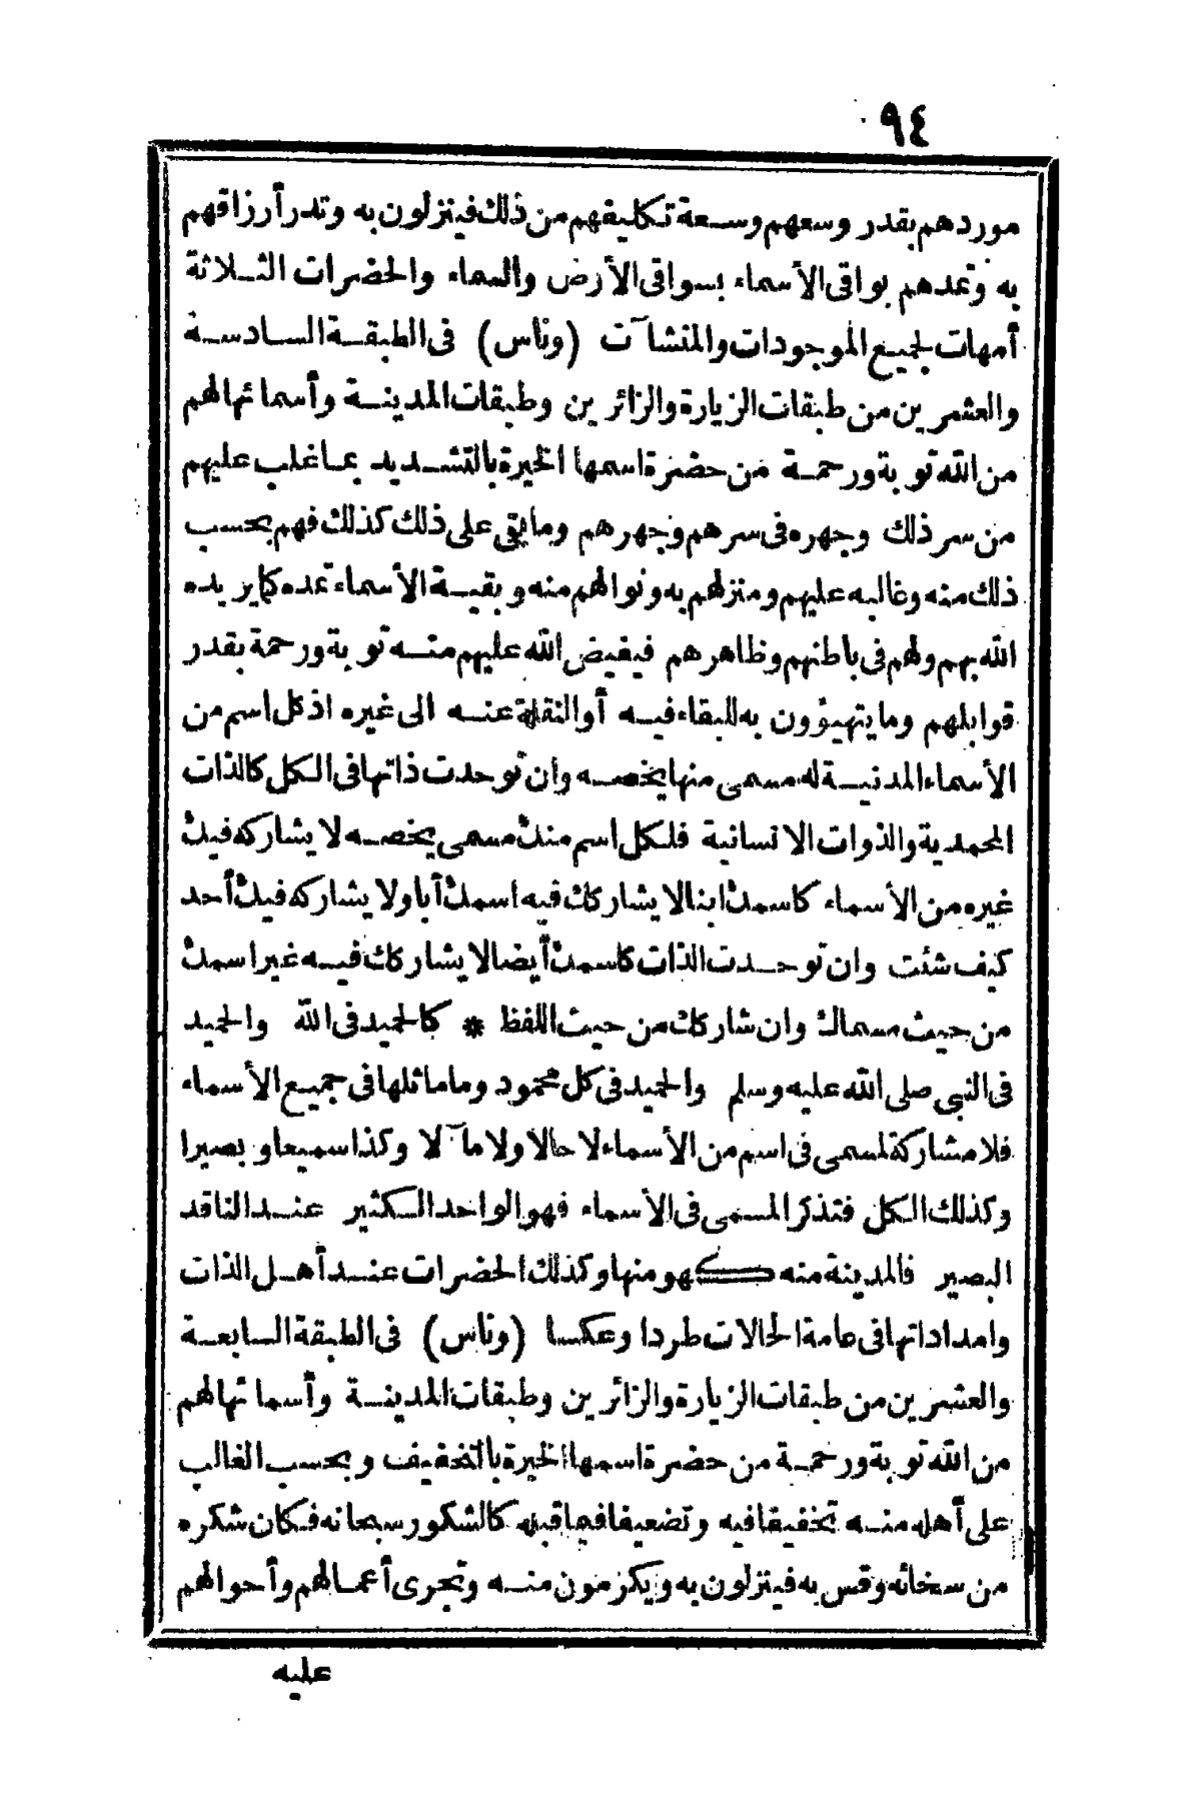 ٩٤
موردهم بقدر وسعهم وسعة تكليفهم من ذلك فينزلون به وتدر أرزاقهم
به وتمدهم بواقى الأسماء بسواقى الأرض والسماء والحضرات الثلاثة
أمهات لجميع الموجودات والمنشآت (وناس) فى الطبقة السادسة
والعشرين من طبقات الزيارة والزائرين وطبقات المدينة وأسمائها لهم
من الله توبة ورحمة من حضرة اسمها الخيرة بالتشديد بما غلب عليهم
من سر ذلك وجهره فى سرهم وجهرهم وما بقى على ذلك كذلك فهم بحسب
ذلك منه وغالبه عليهم ومنزلهم به ونوالهم منه وبقية الأسماء تمده كما يريده
الله بهم ولهم فى باطنهم وظاهرهم فيفيض الله عليهم منه توبة ورحمة بقدر
قوابلهم وما يتهيؤون به للبقاء فيه أو النقلة عنه الى غيره اذ كل اسم من
الأسماء المدنية له مسمى منها يخصه وان توحدت ذاتها فى الكل كالذات
المحمدية والذوات الانسانية فلكل اسم منك مسمى يخصه لا يشاركه فيك
غيره من الأسماء كاسمك ابنا لا يشاركك فيه اسمك أبا ولا يشاركه فيك أحد
كيف شئت وان توحدت الذات كاسمك أيضا لا يشاركك فيه غير اسمك
من حيث مسماك وان شاركك من حيث اللفظ * كالحميد فى الله والحميد
فى النبى صلى الله عليه وسلم والحميد فى كل محمود وما ماثلها فى جميع الأسماء
فلا مشاركة لمسمى فى اسم من الأسماء لا حالا ولا مآلا وكذا سميعا وبصيرا
وكذلك الكل فتذكر المسمى فى الأسماء فهو الواحد الكثير عند الناقد
البصير فالمدينة منه كهو منها وكذلك الحضرات عند أهل الذات
وامداداتها فى عامة الحالات طردا وعكسا (وناس) فى الطبقة السابعة
والعشرين من طبقات الزيارة والزائرين وطبقات المدينة وأسمائها لهم
من الله توبة ورحمة من حضرة اسمها الخيرة بالتخفيف وبحسب الغالب
على أهله منه تخفيفا فيه وتضعيفا فيما قبله كالشكور سبحانه فكان شكره
من سخائه وقس به فينزلون به ويكرمون منه وتجرى أعمالهم وأحوالهم
عليه